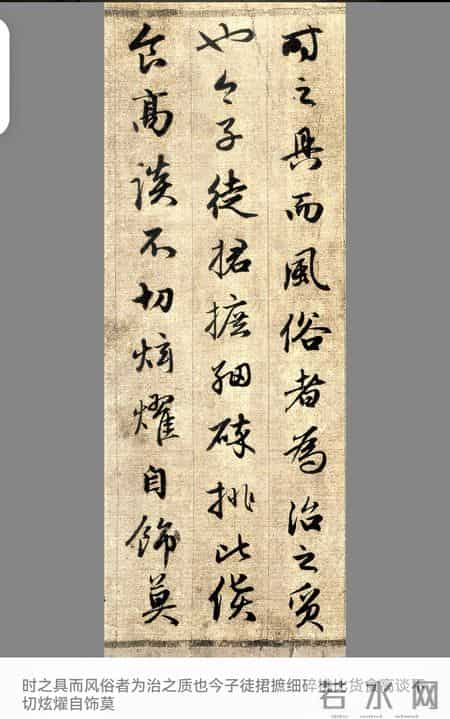 时之具而風俗者為治之質
也今子徒捃摭細碎排比貨
食高談不切炫燿自飾莫
时之具而风俗者为治之质也今子徒捃摭细碎排比货食高谈不
切炫燿自饰莫
若水网